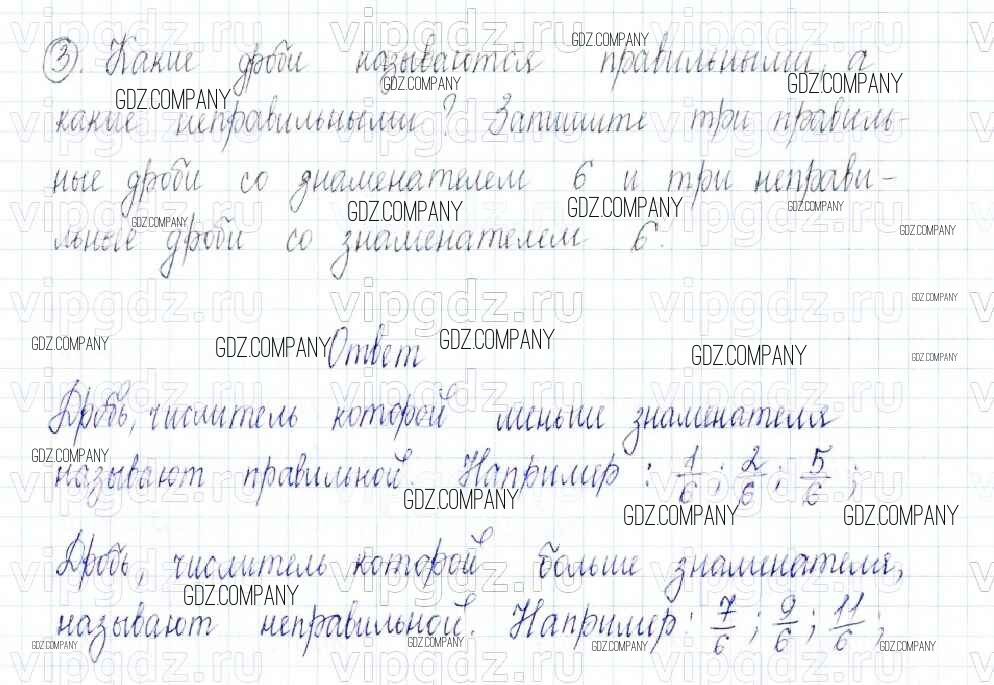 3. Какие дроби называются правильными, а
какие неправильными? Запишите три правиль-
ные дроби со знаменателем 6 и три неправи-
льные дроби со знаменателем 6.
Ответ
Дробь, числитель которой меньше знаменателя
называют правильной. Например: 1/6; 2/6; 5/6;
Дробь, числитель которой больше знаменателя,
называют неправильной. Например: 7/6; 9/6; 11/6;
vipgdz.ru
GDZ.COMPANY